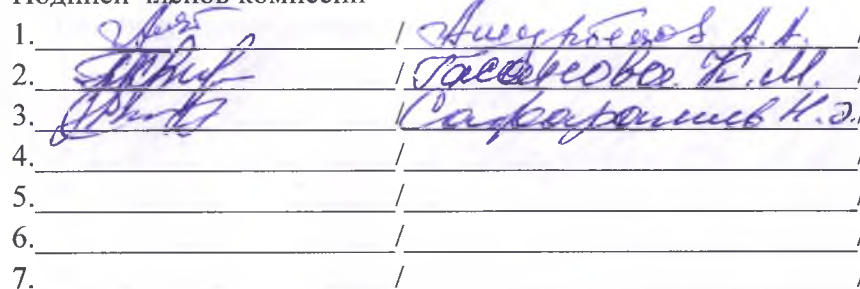 Подписи членов комиссии
1. / А.А. /
2. / Гасанова К.М. /
3. / Сафаралиев Н.Э. /
4. / /
5. / /
6. / /
7. / /